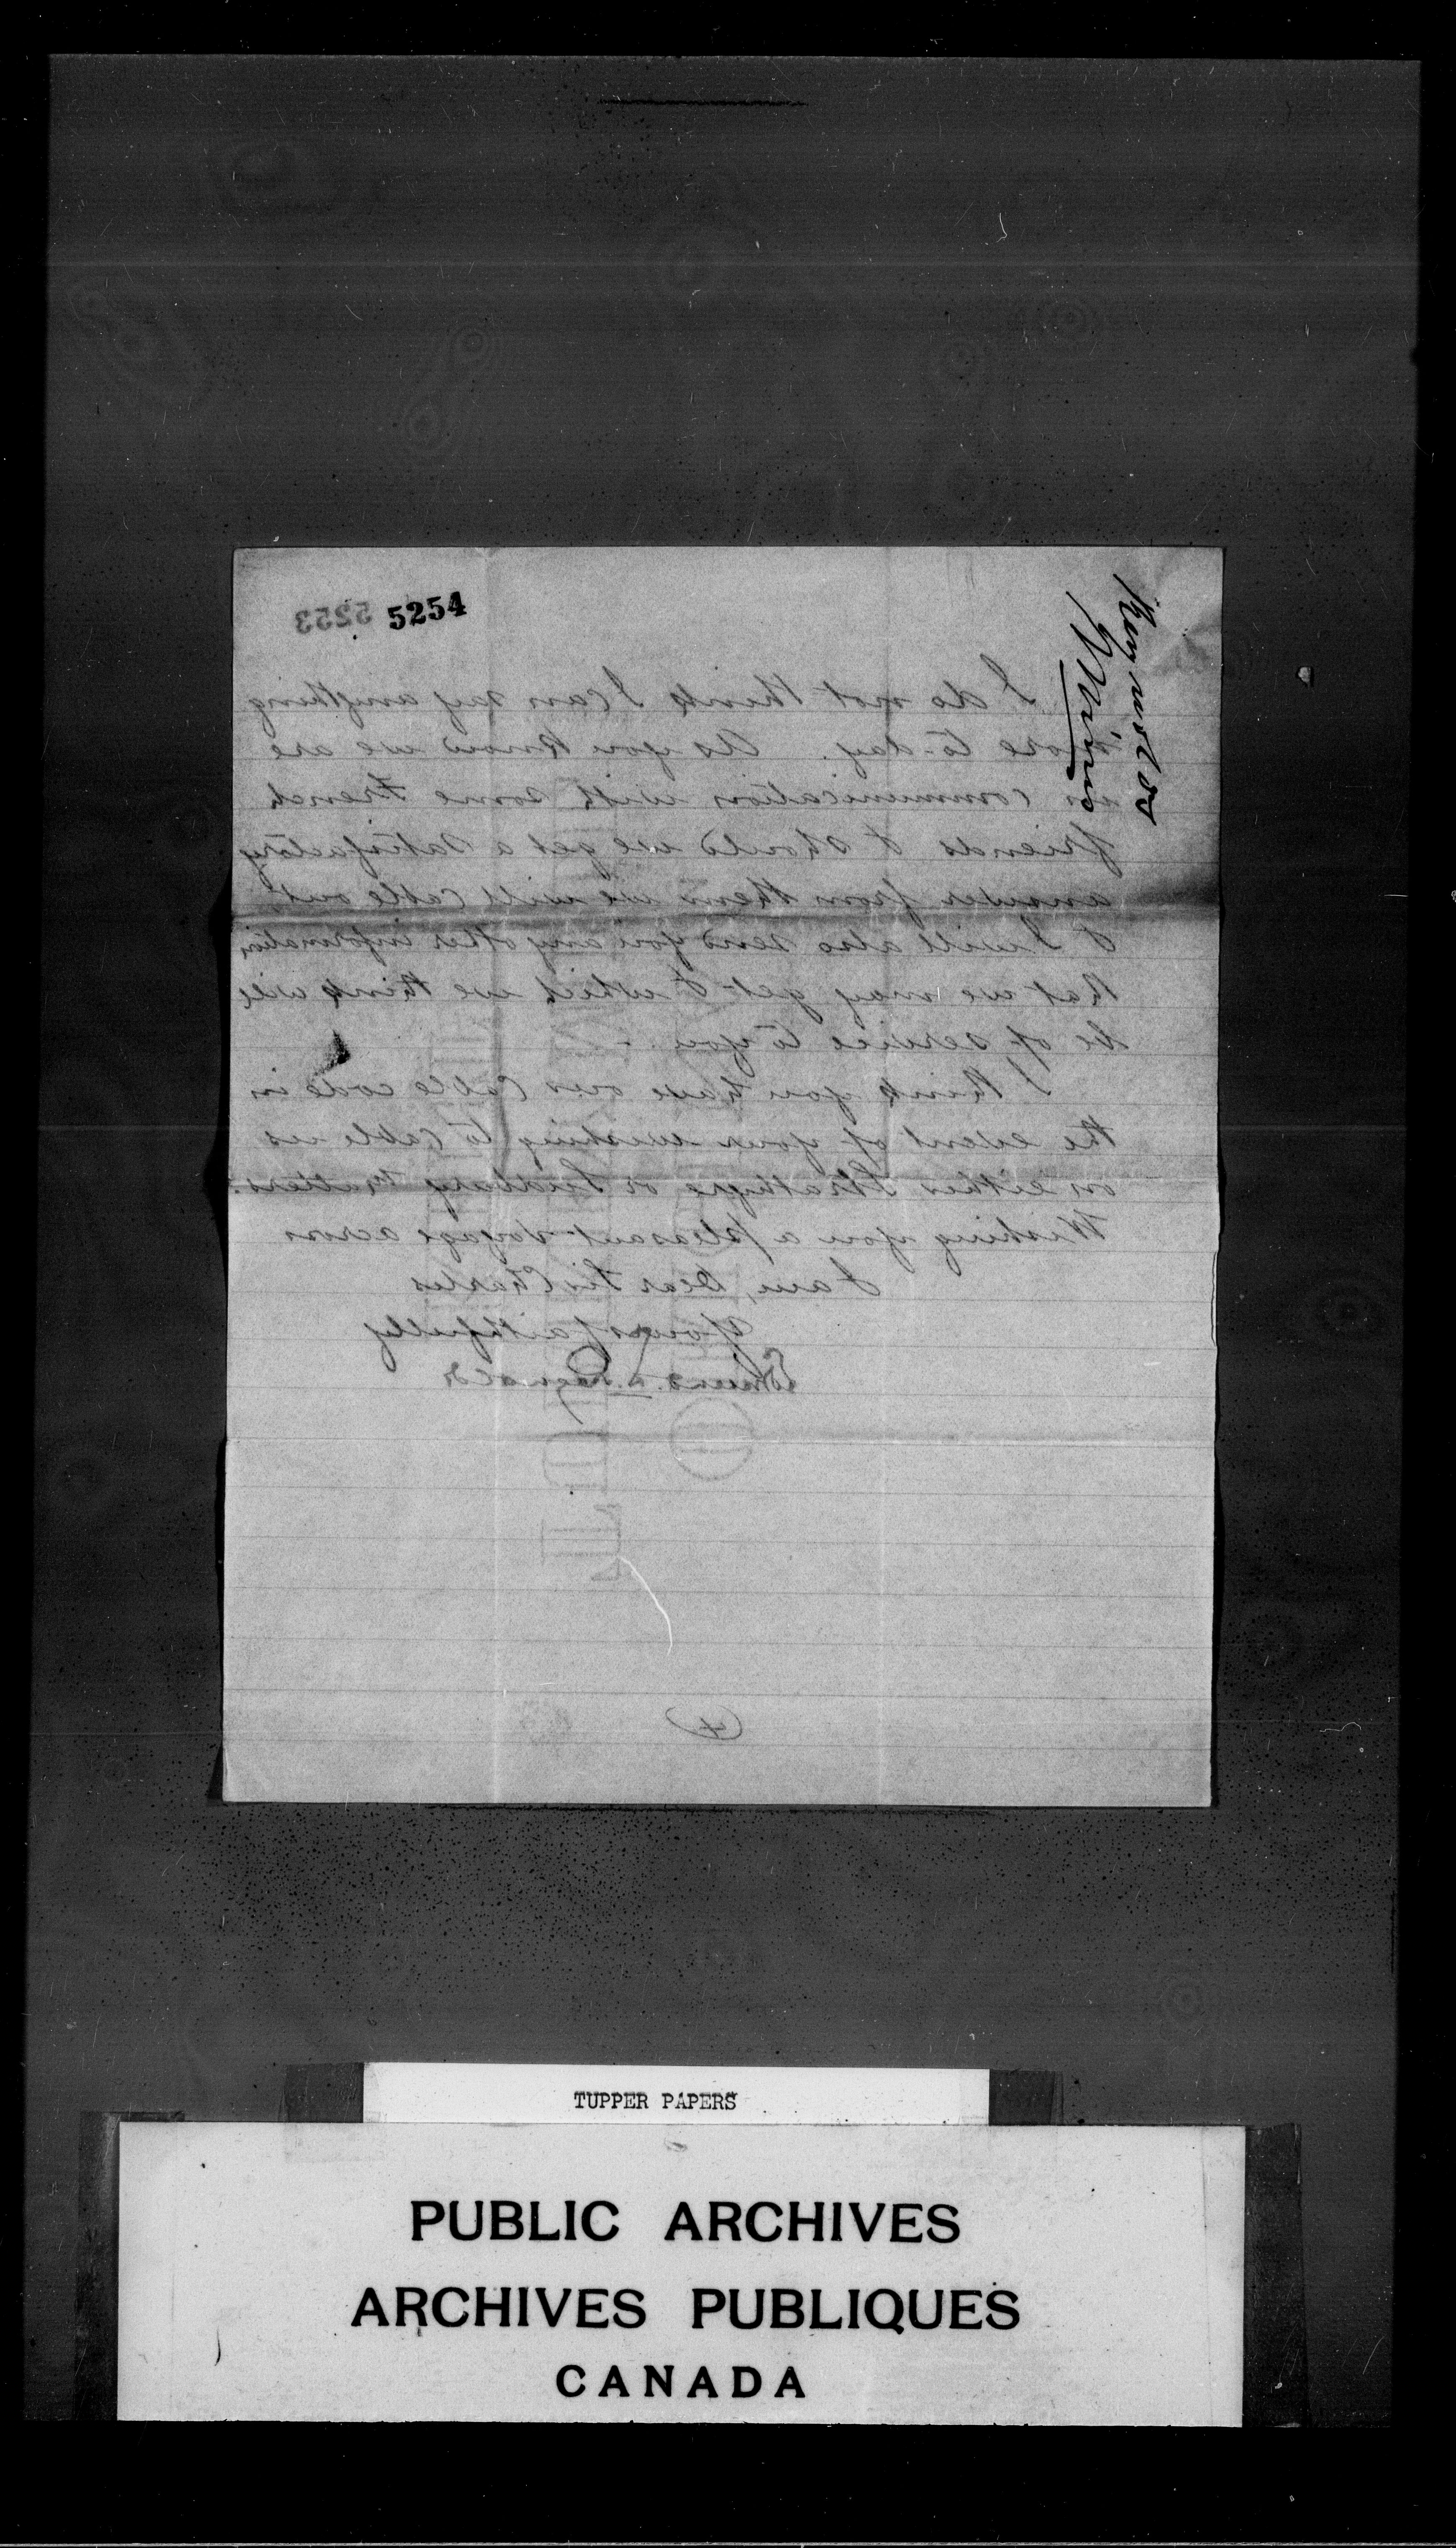 5254
5253
Mining
I do not think I can say anything
more to-day. As you know we are
in communication with some French
friends & should we get a satisfactory
answer from them we will cable out
& I will also send you any other information
that we may get & which we think will
be of service to you. -
I think you have our Cable code in
the event of your wishing to cable us
on either Strathyre or Sudbury Matters.
Wishing you a pleasant voyage across
I am, Dear Sir Charles
Yours faithfully
Edmund
(4)
TUPPER PAPERS
PUBLIC ARCHIVES
ARCHIVES PUBLIQUES
CANADA